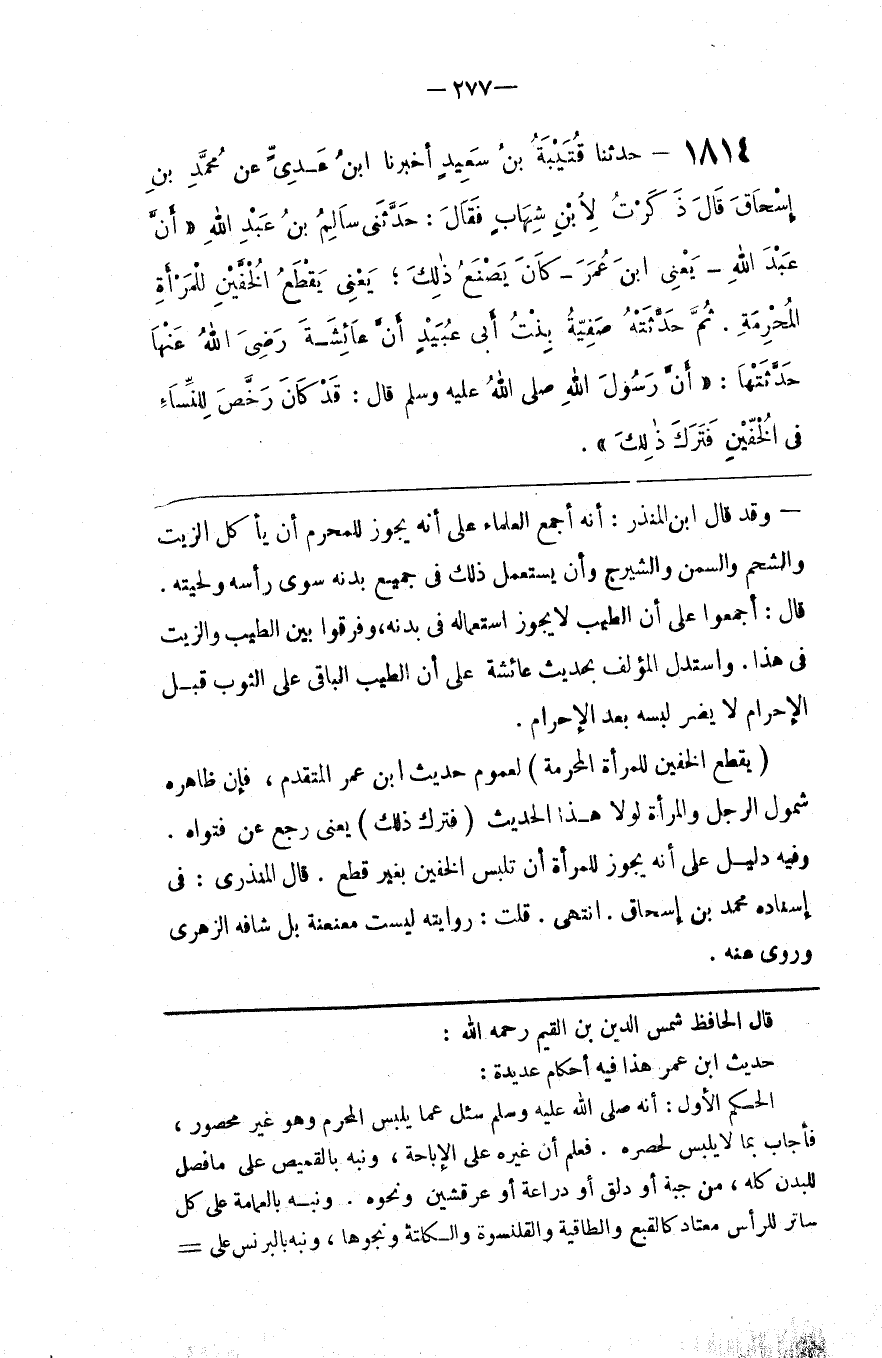 — ٢٧٧ —
١٨١٤ — حدثنا قُتَيْبَةُ بنُ سَعِيدٍ أخبرنا ابنُ عَدِىٍّ عن مُحمَّدِ بنِ
إسْحَاقَ قَالَ ذَكَرْتُ لِابْنِ شِهَابٍ فقَالَ : حَدَّثَنَى سَالِمُ بنُ عَبْدِ اللهِ « أَنَّ
عَبْدَ اللهِ – يَعْنِى ابنَ عُمَرَ – كَانَ يَصْنَعُ ذٰلِكَ ؛ يَعْنِى يَقْطَعُ الْخُفَّيْنِ لِلْمَرْأَةِ
الْمُحْرِمَةِ . ثُمَّ حَدَّثَتْهُ صَفِيَّةُ بِنْتُ أَبى عُبَيْدٍ أَنَّ عَائِشَةَ رَضِىَ اللهُ عَنْهَا
حَدَّثَتْهَا : « أَنَّ رَسُولَ اللهِ صلى اللهُ عليه وسلم قال : قَدْ كَانَ رَخَّصَ لِلنِّسَاءِ
فى الْخُفَّيْنِ فَتَرَكَ ذٰلِكَ » .
— وقد قال ابن المنذر : أنه أجمع العلماء على أنه يجوز للمحرم أن يأكل الزيت
والشحم والسمن والشيرج وأن يستعمل ذلك فى جميع بدنه سوى رأسه ولحيته .
قال : أجمعوا على أن الطيب لا يجوز استعماله فى بدنه، وفرقوا بين الطيب والزيت
فى هذا . واستدل المؤلف بحديث عائشة على أن الطيب الباقى على الثوب قبل
الإحرام لا يضر لبسه بعد الإحرام .
( يقطع الخفين للمرأة المحرمة ) لعموم حديث ابن عمر المتقدم ، فإن ظاهره
شمول الرجل والمرأة لولا هذا الحديث ( فترك ذلك ) يعنى رجع عن فتواه .
وفيه دليل على أنه يجوز للمرأة أن تلبس الخفين بغير قطع . قال المنذرى : فى
إسناده محمد بن إسحاق . انتهى . قلت : روايته ليست معنعنة بل شافه الزهرى
وروى عنه .
قال الحافظ شمس الدين بن القيم رحمه الله :
حديث ابن عمر هذا فيه أحكام عديدة :
الحكم الأول : أنه صلى الله عليه وسلم سئل عما يلبس المحرم وهو غير محصور ،
فأجاب بما لا يلبس لحصره . فعلم أن غيره على الإباحة ، ونبه بالقميص على مافصل
للبدن كله ، من جبة أو دلق أو دراعة أو عرقشين ونحوه . ونبه بالعمامة على كل
ساتر للرأس معتاد كالقبع والطاقية والقلنسوة والكلتة ونحوها ، ونبه بالبرنس على =